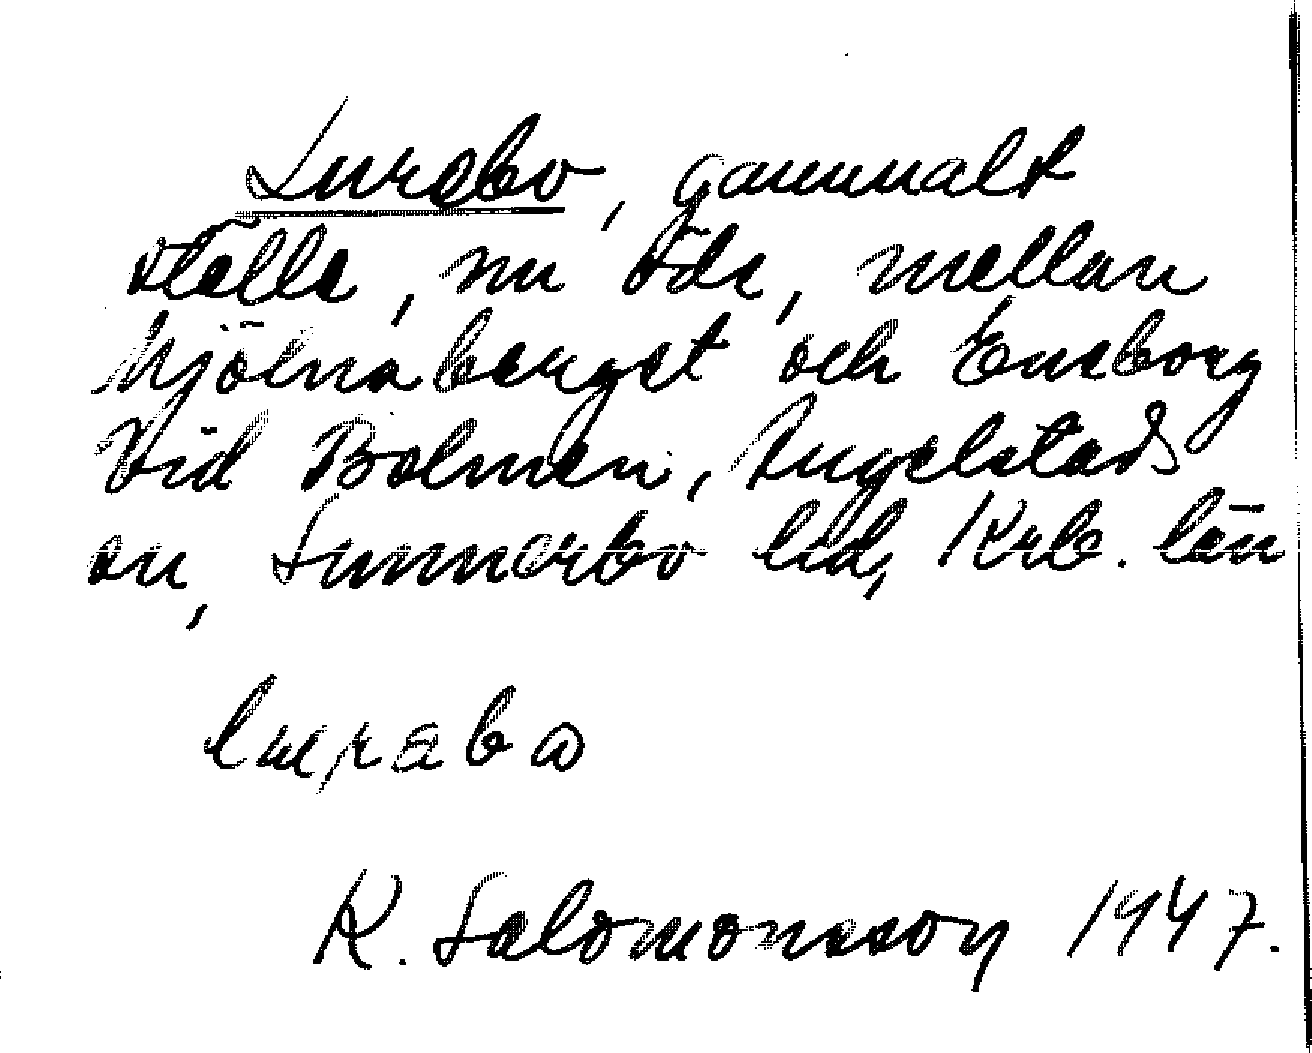 Lurebo, gammalt
ställe, nu öde, mellan
Mjölnaberget och Eneborg
vid Bolmen, Angelstads
sn, Sunnerbo hd, Krb. län
K. Salomonsson 1947.